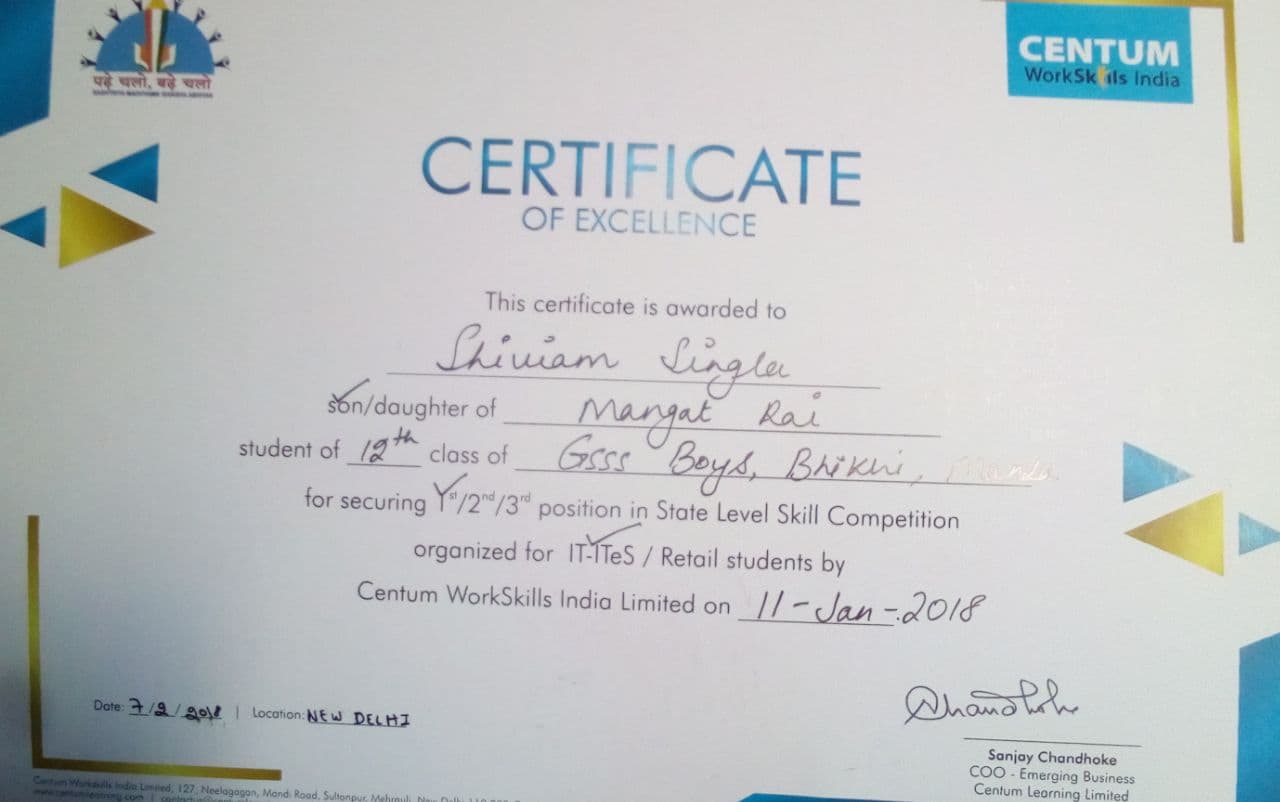 पढ़े चलो, बढ़े चलो
CENTUM
WorkSkills India
CERTIFICATE
OF EXCELLENCE
This certificate is awarded to
Shiviam Singla
son/daughter of Mangat Rai
student of 12th class of GSSS Boys, Bhikhi, Mansa
for securing 1st/2nd/3rd position in State Level Skill Competition
organized for IT-ITeS / Retail students by
Centum WorkSkills India Limited on 11-Jan-2018
Date: 7/2/2018 | Location: NEW DELHI
Sanjay Chandhoke
COO - Emerging Business
Centum Learning Limited
Centum Workskills India Limited, 127, Neelagagan, Mandi Road, Sultanpur, Mehrauli, New Delhi
www.centumlearning.com